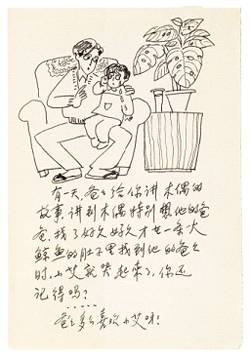 有一天,爸爸给你讲木偶的
故事,讲到木偶特别想他的爸
爸,找了好久好久才在一条大
鲸鱼的肚子里找到他的爸爸
时,小艾就哭起来了,你还
记得吗?
……
爸爸多么喜欢小艾呀!